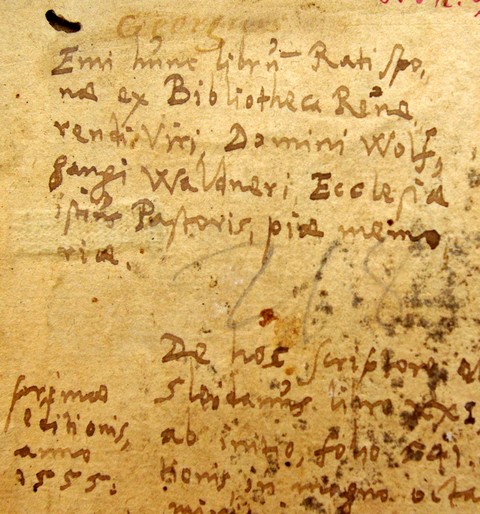 Georgius
Emi hunc librū Ratispo,
næ ex Bibliotheca Reue,
rendi Viri, Domini Wolf,
gangi Waldneri, Ecclesiæ
istius Pastoris, piæ memo,
riæ.
218
De hoc scriptore
Sleidanus libro XXI
ab initio, folio
tionis, in magno octa
primæ
editionis,
anno
1555.